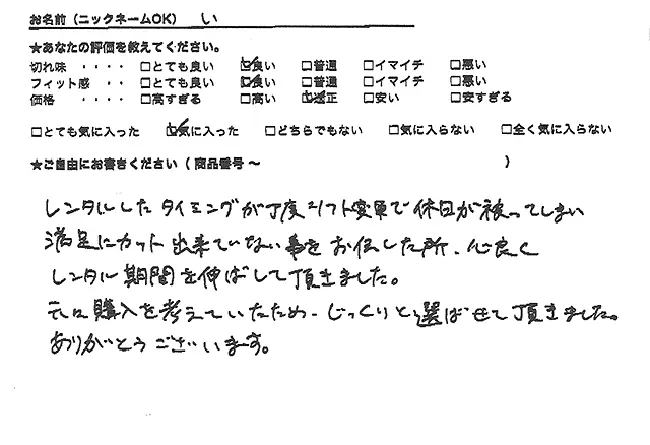 お名前（ニックネームOK） い
★あなたの評価を教えてください。
切れ味 ・・・・ □とても良い ☑良い □普通 □イマイチ □悪い
フィット感 ・・ □とても良い ☑良い □普通 □イマイチ □悪い
価格 ・・・・ □高すぎる □高い ☑適正 □安い □安すぎる
□とても気に入った ☑気に入った □どちらでもない □気に入らない □全く気に入らない
★ご自由にお書きください（商品番号～ ）
レンタルしたタイミングが丁度シフト変更で休日が被ってしまい
満足にカット出来ていない事をお伝した所、心良く
レンタル期間を伸ばして頂きました。
元々購入を考えていたため、じっくりと選ばせて頂きました。
ありがとうございます。